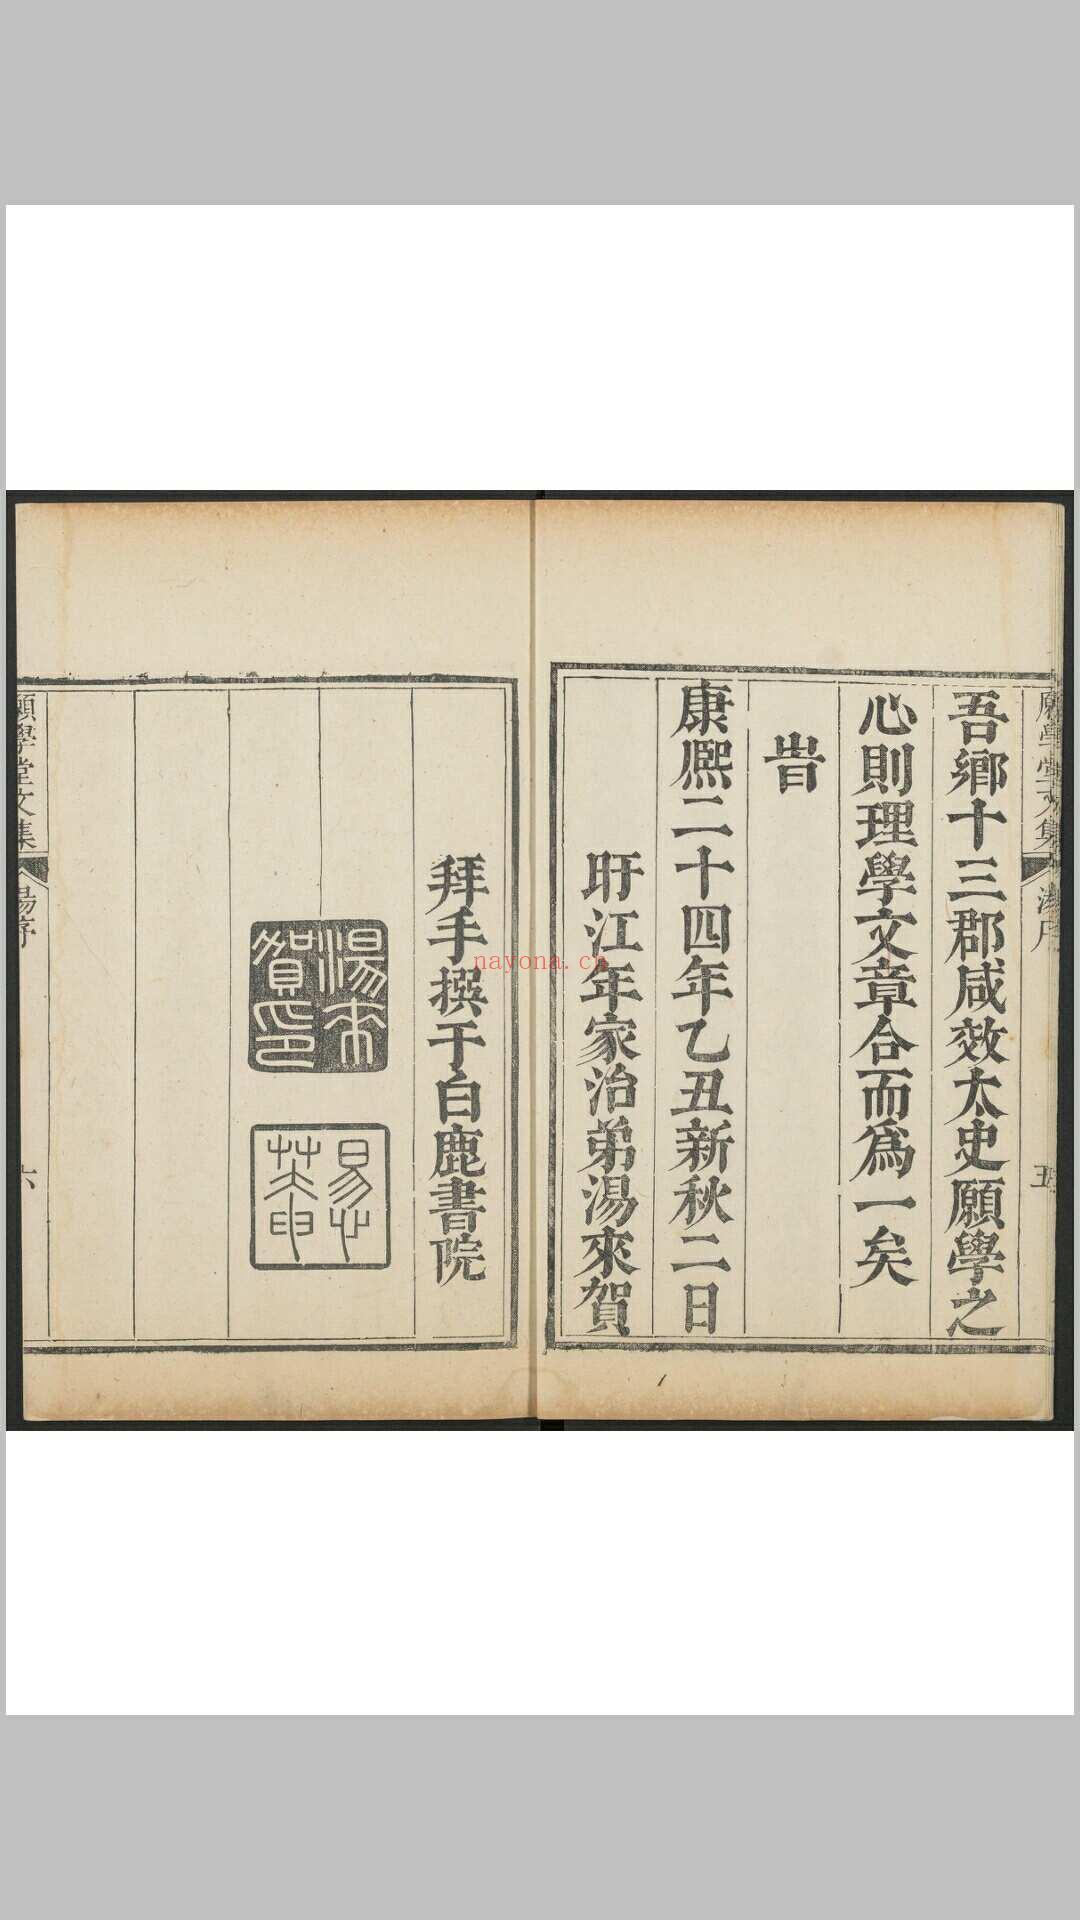 願學堂文集
湯序
五
吾鄉十三郡咸效太史願學之
心則理學文章合而爲一矣
旹
康熙二十四年乙丑新秋二日
旴江年家治弟湯來賀
拜手撰于白鹿書院
湯來賀印
願學堂文集
湯序
六
nayona.cn